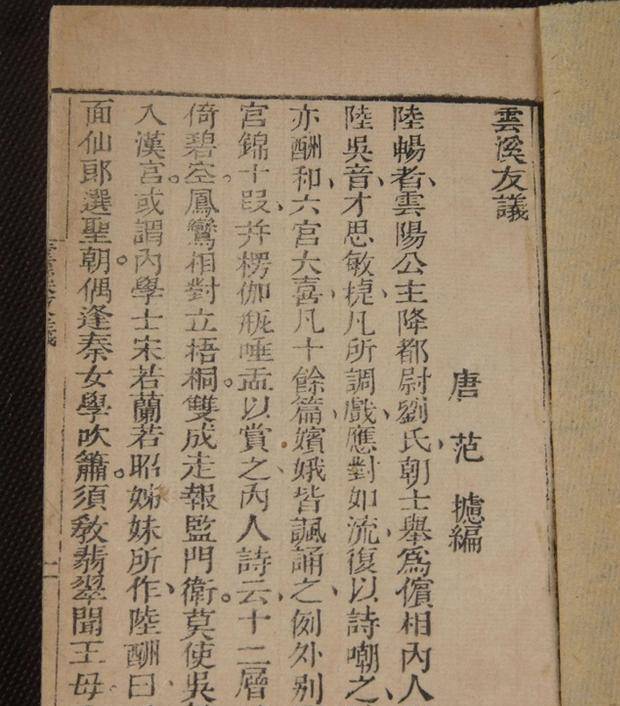 雲溪友議
唐 范 攄編
陸暢者、雲陽公主降都尉劉氏、朝士舉爲儐相內人
陸吳音、才思敏捷、凡所調戲、應對如流、復以詩嘲之、
亦酬和、六宮大喜、凡十餘篇、嬪娥皆諷誦之、例外別
宮錦十段、并楞伽瓶唾盂以賞之、內人詩云、十二層
倚碧空。鳳鸞相對立梧桐。雙成走報監門衛。莫使吳
入漢宮。或謂內學士宋若蘭若昭姊妹所作、陸酬曰
面仙郎選聖朝。偶逢秦女學吹簫。須教翡翠聞王母